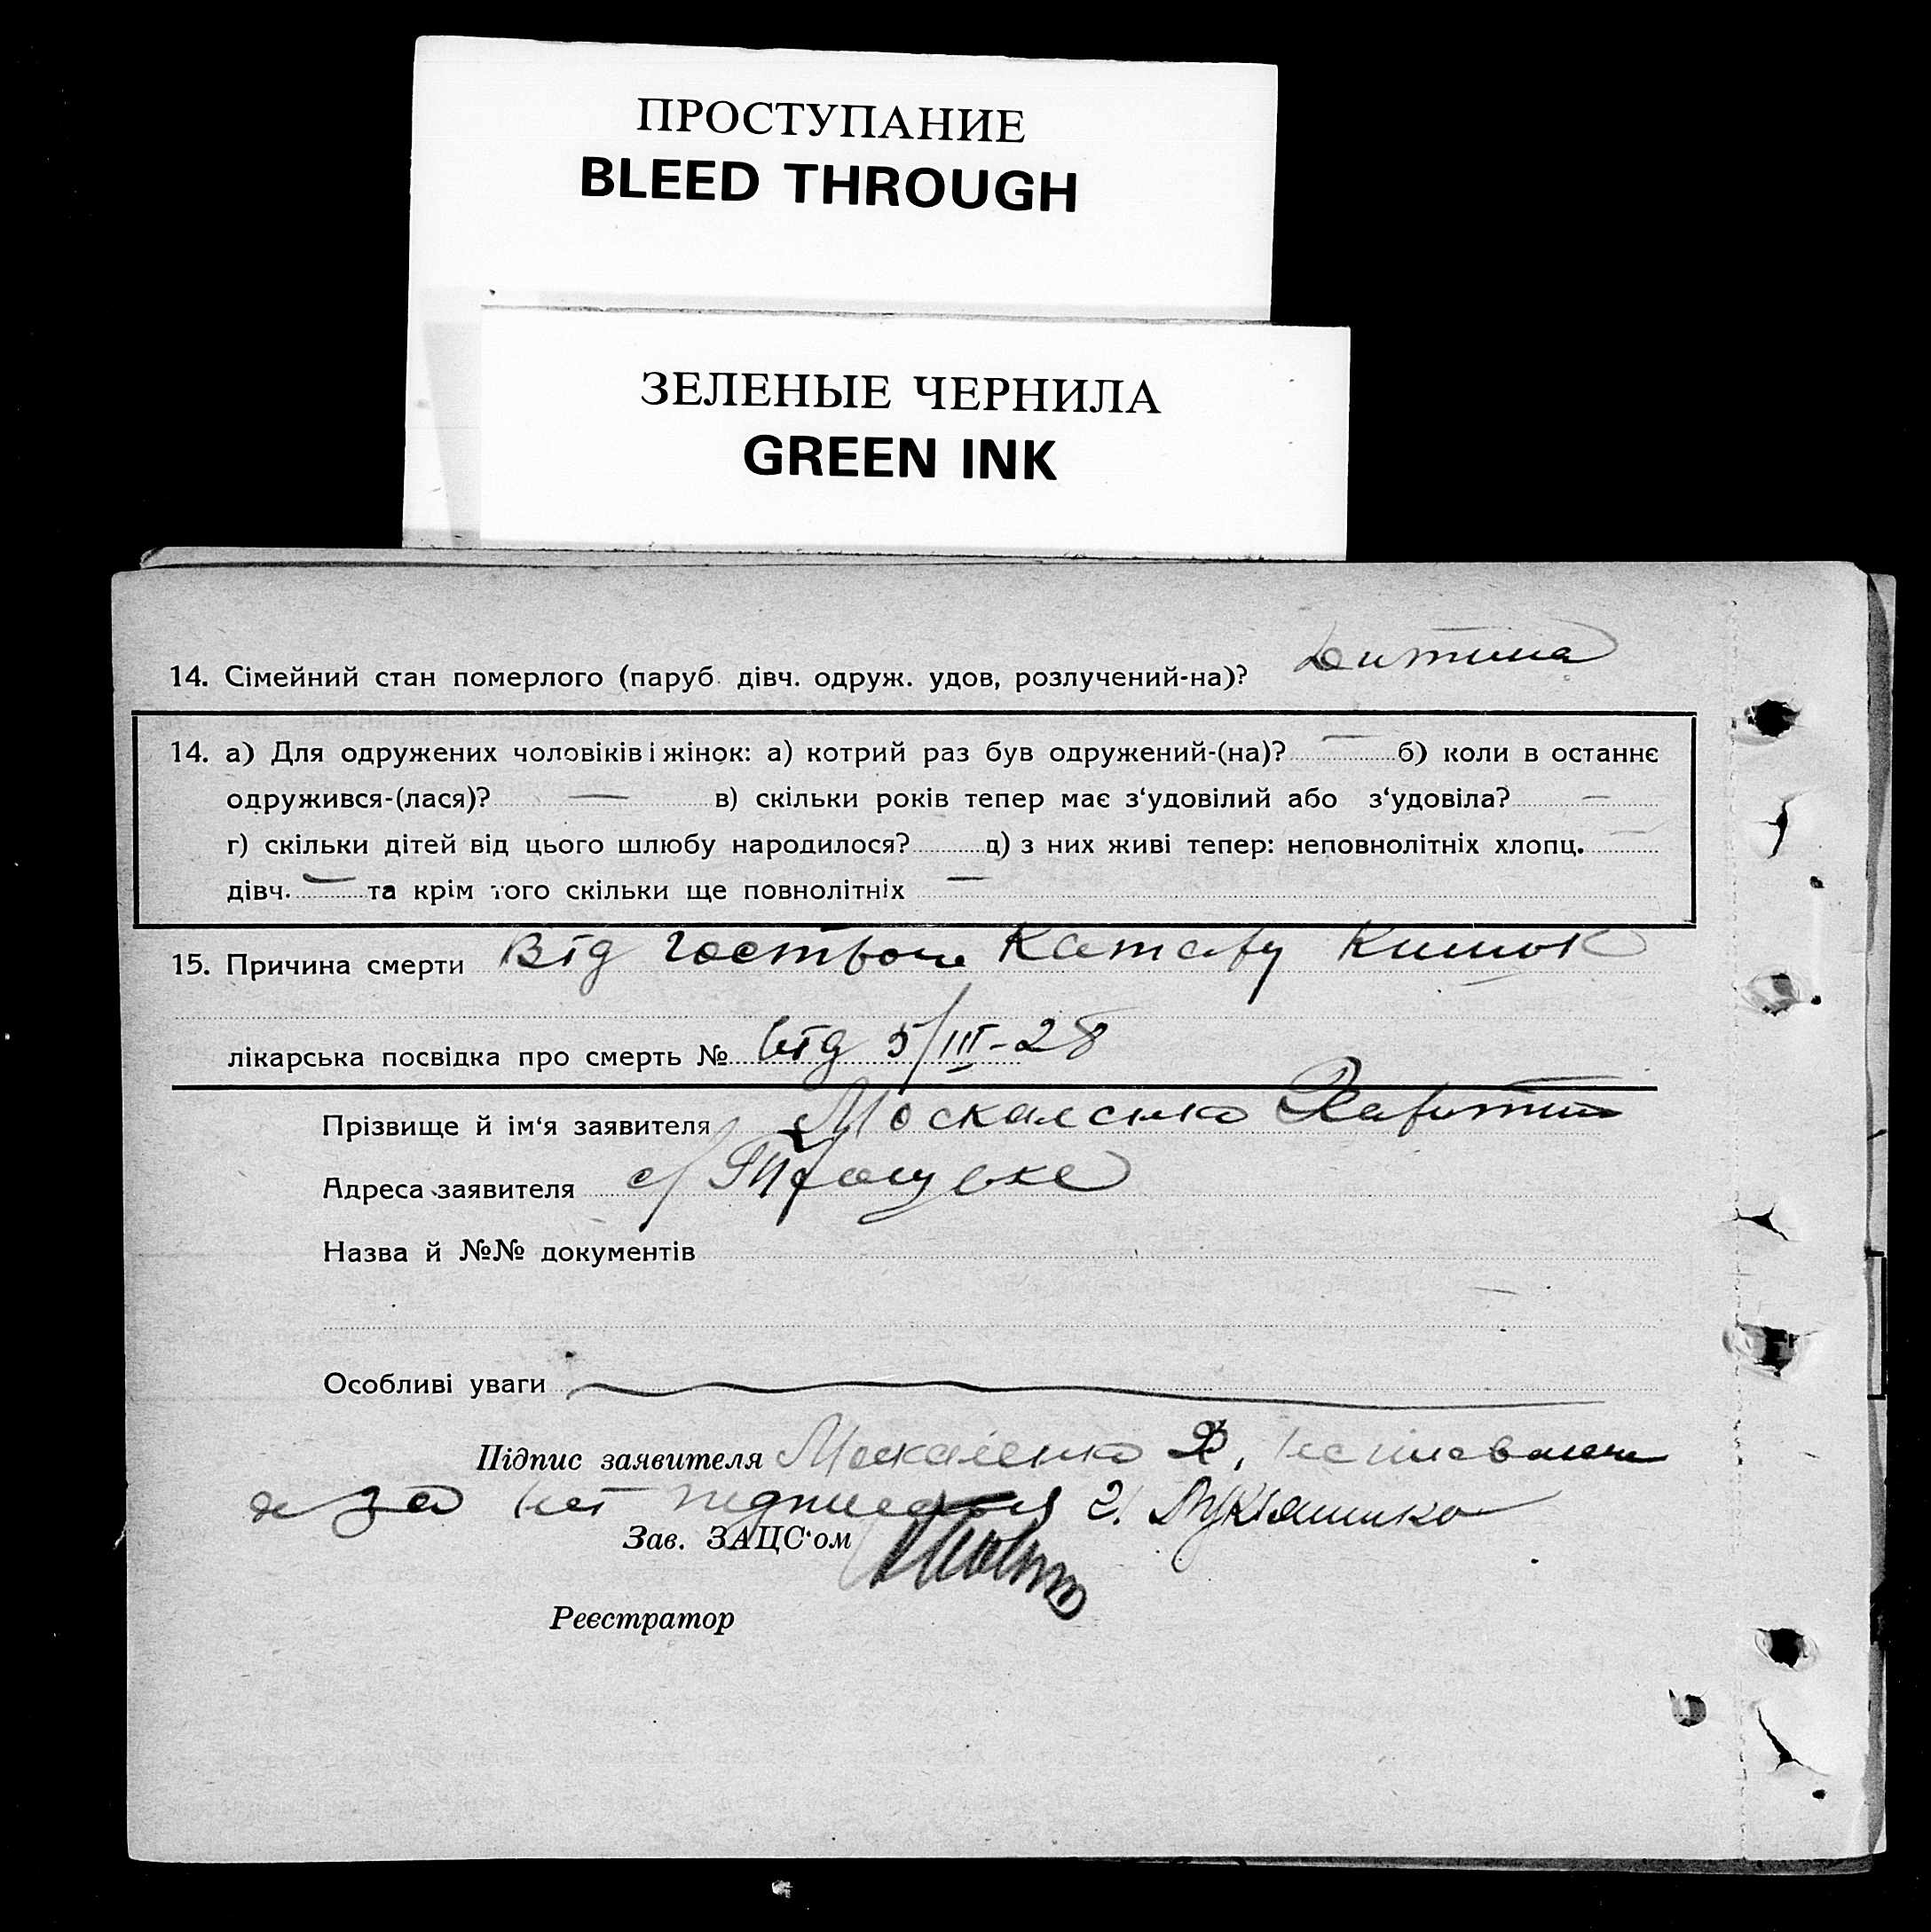 ПРОСТУПАНИЕ
BLEED THROUGH
ЗЕЛЕНЫЕ ЧЕРНИЛА
GREEN INK
14. Сімейний стан померлого (паруб. дівч. одруж. удов, розлучений-на)? Дитина
14. а) Для одружених чоловіків і жінок: а) котрий раз був одружений-(на)? — б) коли в останнє
одружився-(лася)? — в) скільки років тепер має з‘удовілий або з‘удовіла? —
г) скільки дітей від цього шлюбу народилося? д) з них живі тепер: неповнолітніх хлопц. —
дівч. — та крім того скільки ще повнолітніх —
15. Причина смерти Від гострого Катару Кишок
лікарська посвідка про смерть № від 5/III-28
Прізвище й ім‘я заявителя Москаленко
Адреса заявителя с/
Назва й №№ документів
Особливі уваги
Підпис заявителя Москаленко
за неї підписався Г. Лукяненко
Зав. ЗАЦС‘ом
Реєстратор